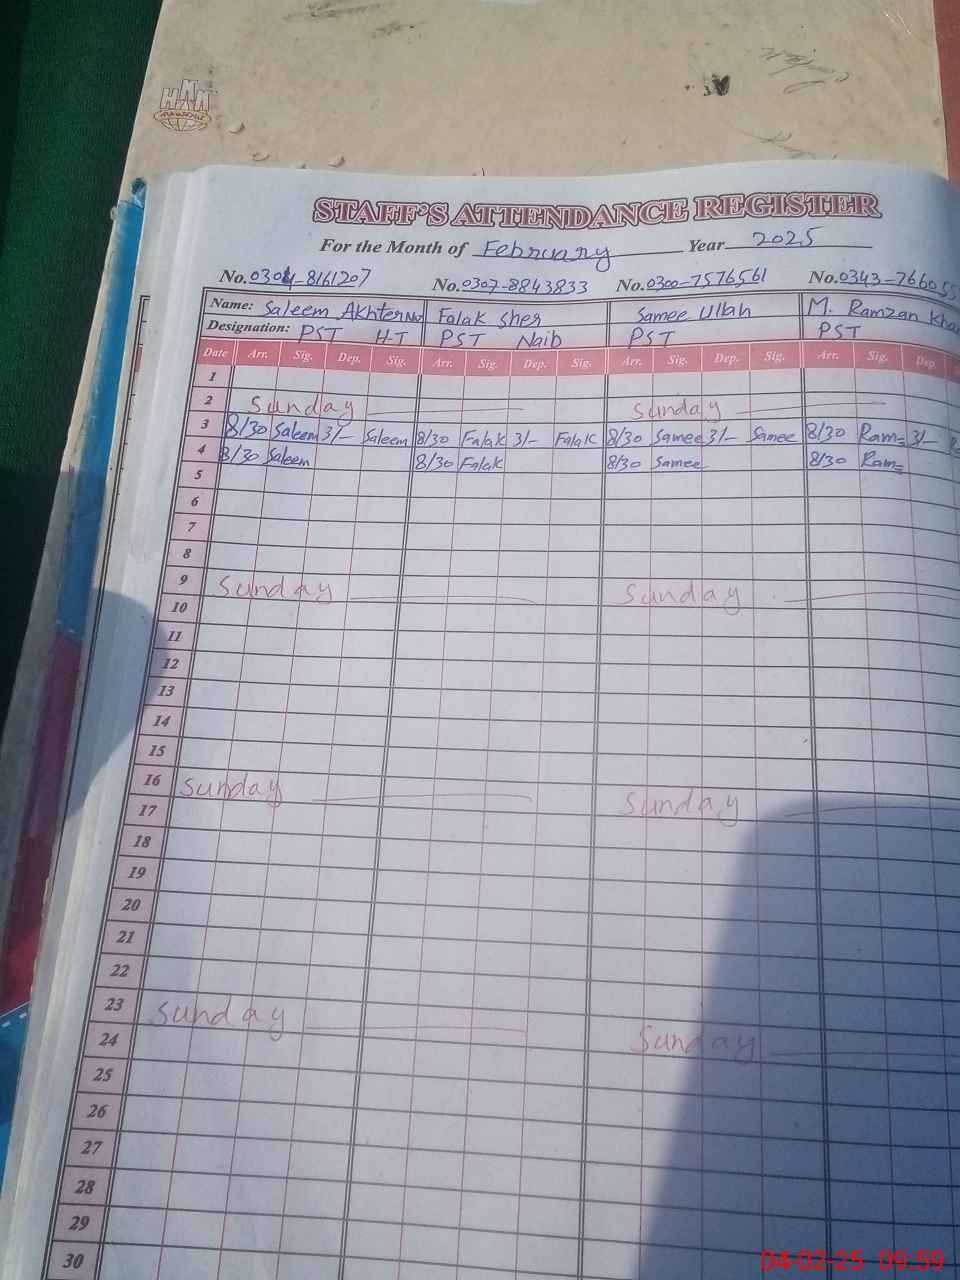 HMM
STAFF'S ATTENDANCE REGISTER
For the Month of February Year 2025
No. 0304-8161207 No. 0307-8843833 No. 0300-7576561 No. 0343-766055
Name: Saleem Akhter Falak Sher Samee Ullah M. Ramzan Khan
Designation: PST HT PST Naib PST PST
Date Arr. Sig. Dep. Sig. Arr. Sig. Dep. Sig. Arr. Sig. Dep. Sig. Arr. Sig. Dep.
1
2 Sunday Sunday
3 8/30 Saleem 3/- Saleem 8/30 Falak 3/- Falak 8/30 Samee 3/- Samee 8/30 Ram= 3/-
4 8/30 Saleem 8/30 Falak 8/30 Samee 8/30 Ram=
5
6
7
8
9 Sunday Sunday
10
11
12
13
14
15
16 Sunday Sunday
17
18
19
20
21
22
23 Sunday
24 Sunday
25
26
27
28
29
30
04-02-25 09:59